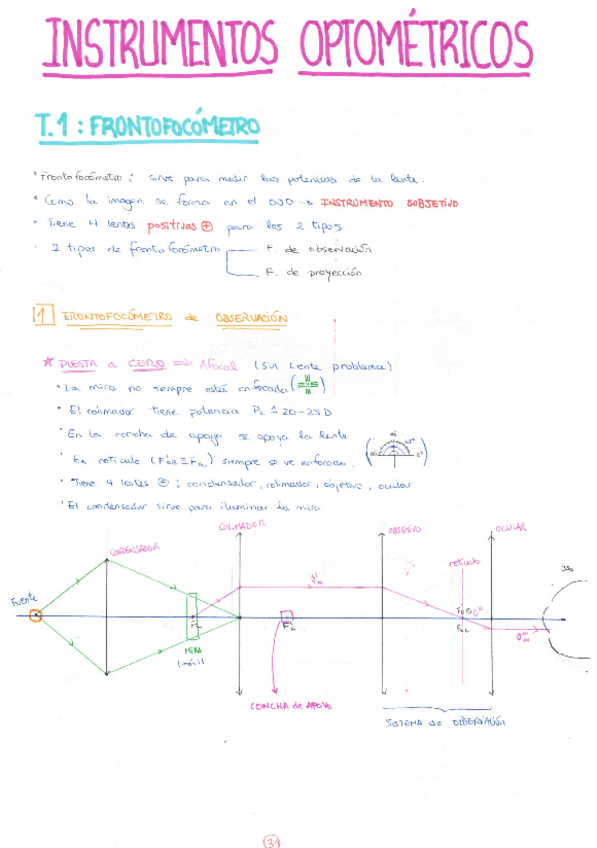 INSTRUMENTOS OPTOMÉTRICOS
T.1 : FRONTOFOCÓMETRO
• Frontofocómetro : sirve para medir las potencias de la lente.
• Como la imagen se forma en el OJO → INSTRUMENTO SUBJETIVO
• Tiene 4 lentes positivas ⊕ para los 2 tipos
• 2 tipos de frontofocómetro
F. de observación
F. de proyección
1 FRONTOFOCÓMETRO de OBSERVACIÓN
★ PUESTA a CERO ⇒ Afocal (sin Lente problema)
• La mira no siempre está enfocada
• El colimador tiene potencia
20-25D
• En la concha de apoyo se apoya la lente
• En retículo (F'OB ≡ FOC) siempre se ve enfocado.
• Tiene 4 lentes ⊕ ; condensador, colimador, objetivo, ocular
• El condensador sirve para iluminar la mira
COLIMADOR
OBJETIVO
OCULAR
CONDENSADOR
retículo
OJO
Fuente
F'OB
FOC
FL
F'L
MIRA
(móvil)
CONCHA de APOYO
SISTEMA de OBSERVACIÓN
31